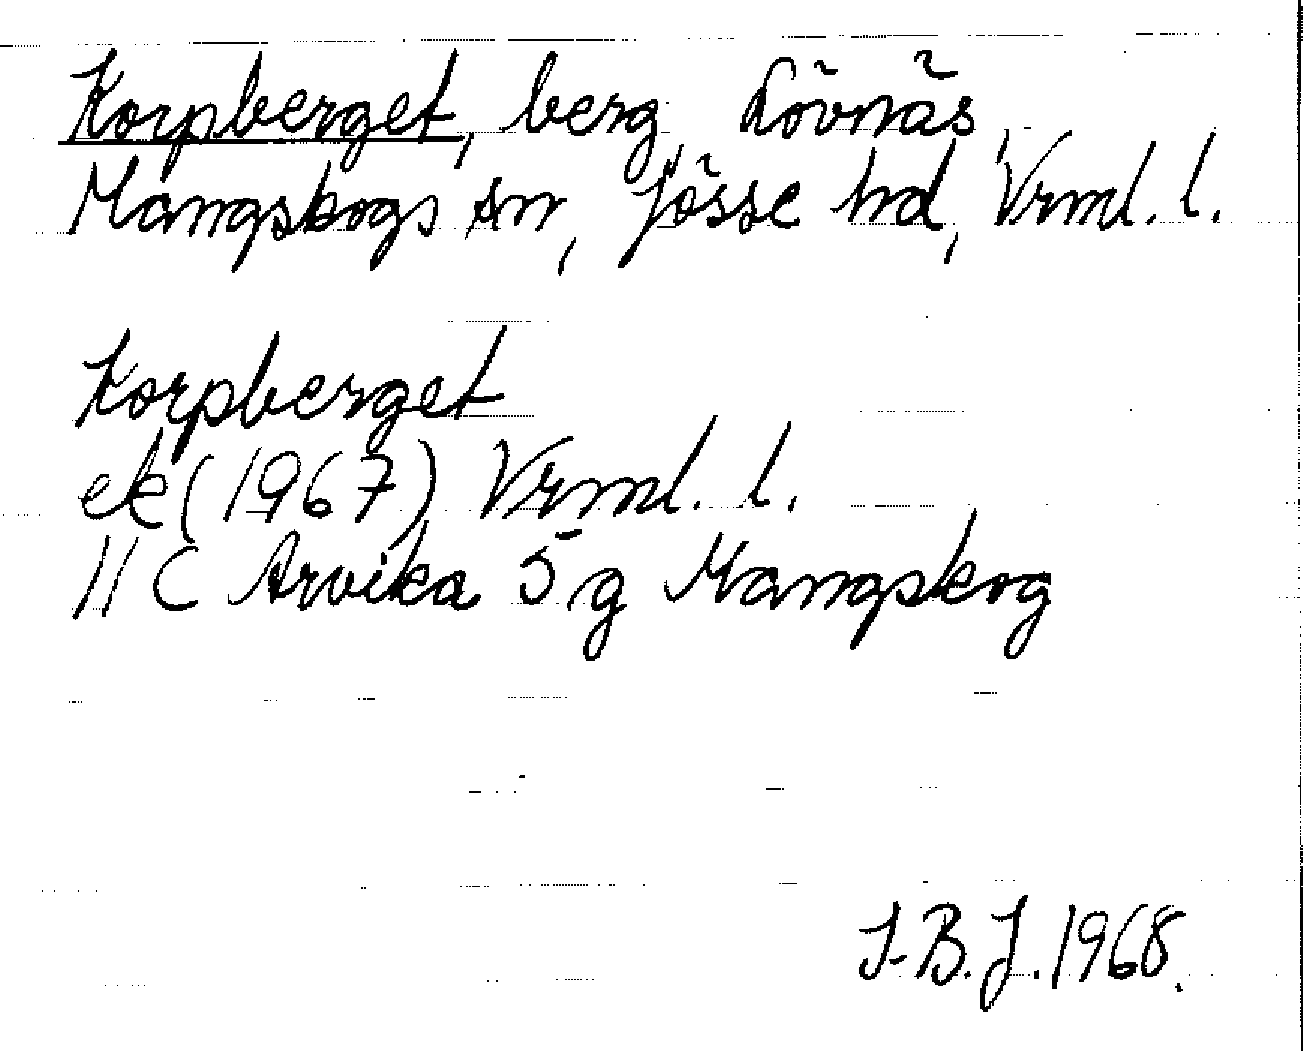 Korpberget, berg Lövnäs,
Mangskogs sn, Jösse hd, Vrml. l.
Korpberget
ek (1967) Vrml. l.
11 C Arvika 5 g Mangskog
I-B. J. 1968.